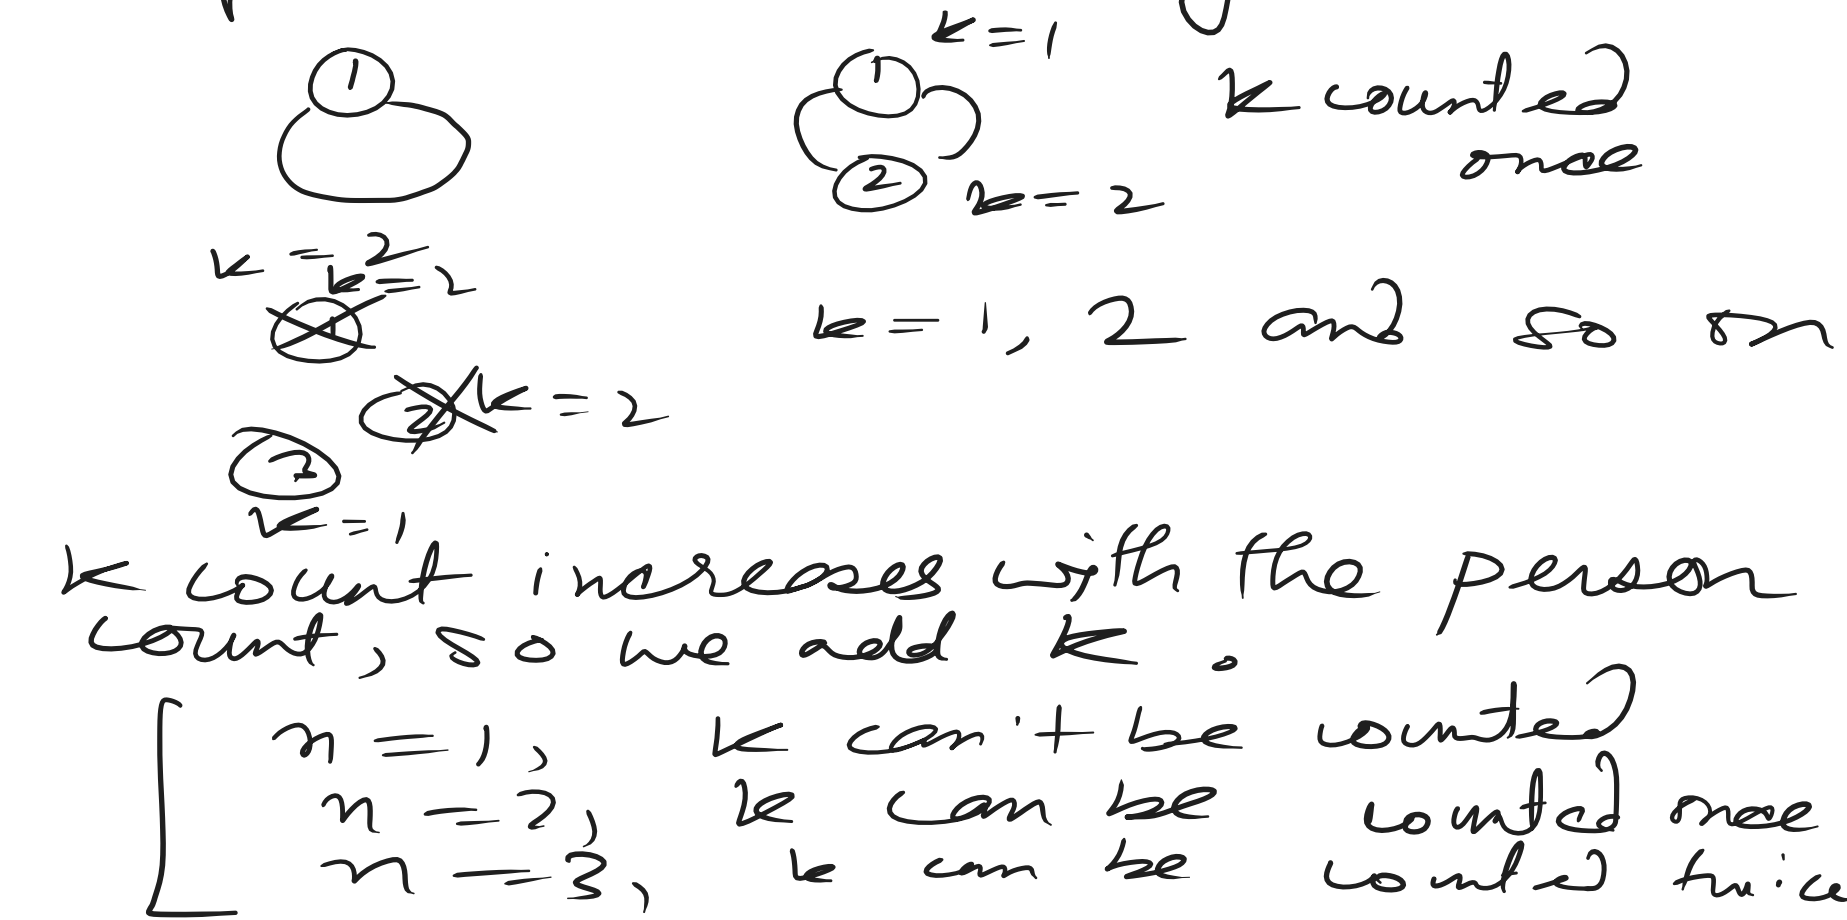 k = 1
1
1
k counted
once
2
k = 2
k = 2
k = 2
1
k = 1, 2 and so on
2
k = 2
k = 1
k count increases with the person
count, so we add k.
n = 1, k can't be counted
n = 2, k can be counted once
n = 3, k can be counted twice